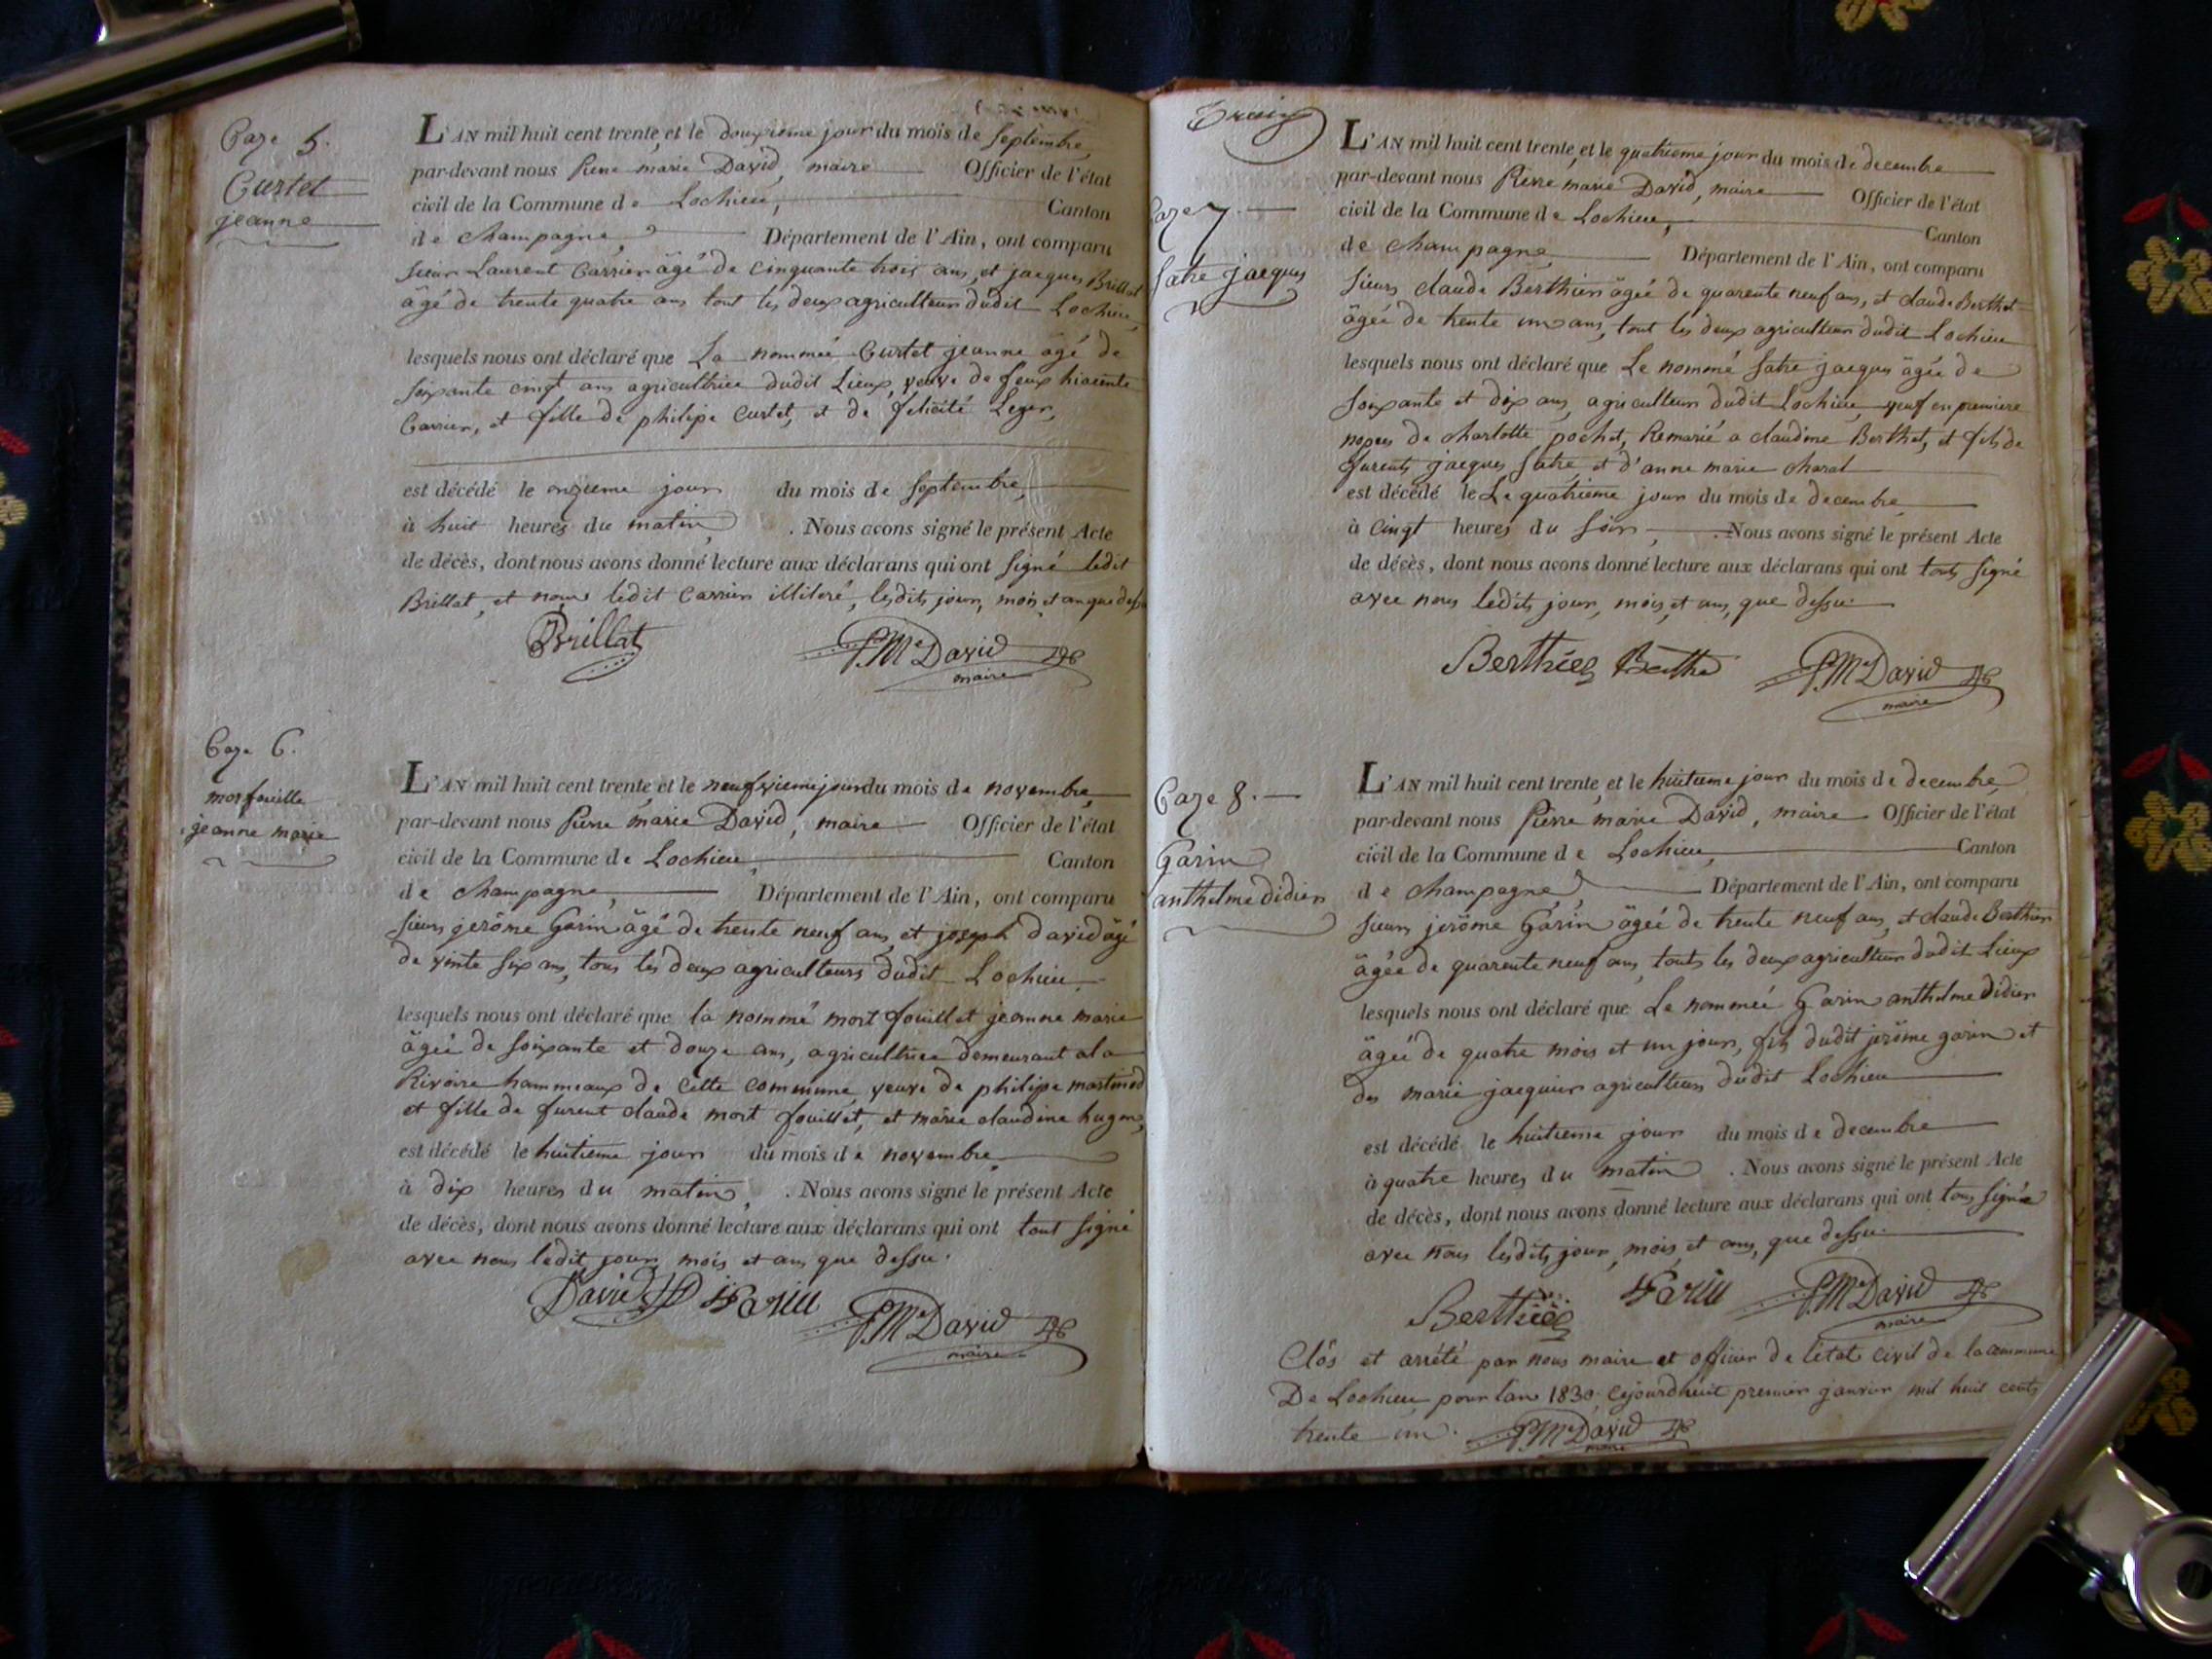 Page 5.
Curtet
jeanne
L'AN mil huit cent trente, et le douzieme jour du mois de Septembre,
par-devant nous Pierre marie David, maire Officier de l'état
civil de la Commune de Lochieu, Canton
de champagne, Département de l'Ain, ont comparu
sieur Laurent Carrier âgé de cinquante trois ans, et jacques Brillat
âgé de trente quatre ans tout les deux agriculteurs dudit Lochieu,
lesquels nous ont déclaré que La nommée Curtet jeanne âgé de
soixante cinqt ans agricultrice dudit Lieux, veuve de feux hiacinte
Carrier, et fille de philipe Curtet, et de felicité Leger,
est décédé le onzieme jour du mois de Septembre,
à huit heures du matin, . Nous avons signé le présent Acte
de décès, dont nous avons donné lecture aux déclarans qui ont signé ledit
Brillat, et nous ledit Carrier illiteré, lesdits jour, mois, et an que dessu
Brillat PMe David maire
Page 6.
morfouille
jeanne marie
L'AN mil huit cent trente, et le neufvieme jour du mois de novembre,
par-devant nous Pierre marie David, maire Officier de l'état
civil de la Commune de Lochieu, Canton
de champagne, Département de l'Ain, ont comparu
sieurs jerôme Garin âgé de trente neuf ans, et joseph david âgé
de vinte six ans, tous les deux agriculteurs dudit Lochieu,
lesquels nous ont déclaré que la nommé mort fouillet jeanne marie
âgée de soixante et douze ans, agricultrice demeurant a la
Rivoire hammeaux de cette commune, veuve de philippe martinod
et fille de furent claude mort fouillét, et marie claudine hugon,
est décédé le huitieme jour du mois de novembre,
à dix heures du matin, . Nous avons signé le présent Acte
de décès, dont nous avons donné lecture aux déclarans qui ont tout signé
avec nous ledit jour, mois et ans que dessu.
David Garin PMe David maire
Page 7.
Satre jacques
L'AN mil huit cent trente, et le quatrieme jour du mois de decembre
par-devant nous Pierre marie David, maire Officier de l'état
civil de la Commune de Lochieu, Canton
de champagne, Département de l'Ain, ont comparu
sieurs claude Berthier âgée de quarente neuf ans, et claude Berthet
âgée de trente un ans, tout les deux agriculteurs dudit Lochieu
lesquels nous ont déclaré que Le nommé Satre jacques âgée de
soixante et dix ans, agriculteur dudit Lochieu, veuf en premiere
nopces de charlotte pochet, Remarié a claudine Berthet, et fils de
furents jacques Satre, et d'anne marie charat
est décédé le Le quatrieme jour du mois de decembre
à cinqt heures du soir, . Nous avons signé le présent Acte
de décès, dont nous avons donné lecture aux déclarans qui ont touts signé
avec nous ledits jour, mois, et ans, que dessu.
Berthier Berthe PMe David maire
Page 8.
Garin
anthelme didier
L'AN mil huit cent trente, et le huitieme jour du mois de decembre,
par-devant nous Pierre marie David, maire Officier de l'état
civil de la Commune de Lochieu, Canton
de champagne, Département de l'Ain, ont comparu
sieurs jerôme Garin âgée de trente neuf ans, et claude Berthier
âgée de quarente neuf ans, touts les deux agriculteurs dudit Lieux
lesquels nous ont déclaré que Le nommée Garin anthelme didier
âgée de quatre mois et un jours, fils dudit jerôme garin et
de marie jacquier agriculteurs dudit Lochieu
est décédé le huitieme jour du mois de decembre
à quatre heures du matin . Nous avons signé le présent Acte
de décès, dont nous avons donné lecture aux déclarans qui ont tous signée
avec nous lesdits jour, mois, et ans, que dessu.
Berthier Garin PMe David maire
Clôs et arrété par nous maire et officier de l'état civil de la commune
De Lochieu pour l'an 1830. cejourdhuit premier janvier mil huit cents
trente un. PMe David maire